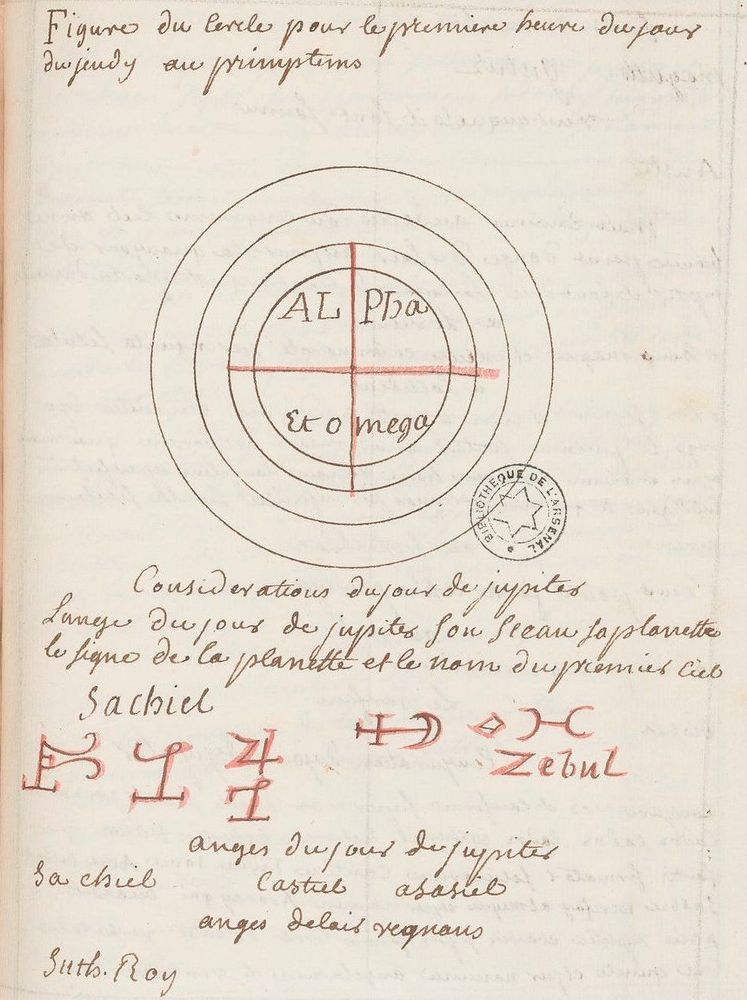 Figure du Cercle pour le premiere heure du jour
du jeudy au primptems
ALPha
Et omega
BIBLIOTHEQUE DE L'ARSENAL
Considerations du jour de jupiter
Lange du jour de jupiter son sceau sa planette
le signe de la planette et le nom du premier Ciel
Sachiel
Zebul
anges du jour de jupiter
Sachiel Castiel asasiel
anges delair regnans
Suth. Roy